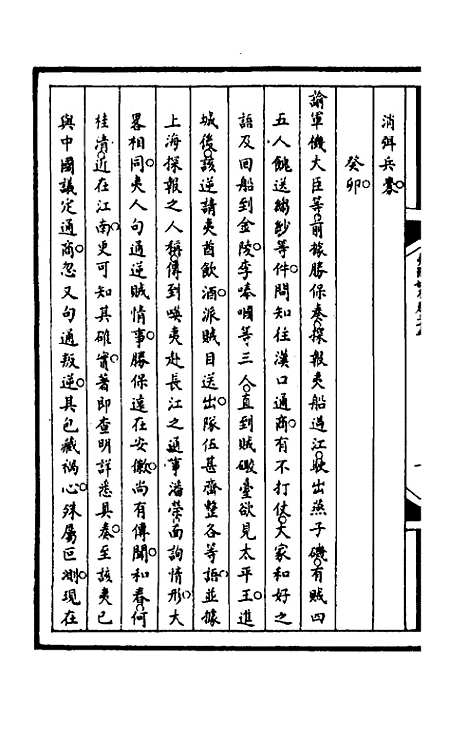 消弭兵釁
癸卯
諭軍機大臣等前據勝保奏探報夷船過江駛出燕子磯有賊四
五人餽送縐紗等件問知往漢口通商有不打仗大家和好之
語及回船到金陵李嗪國等三人直到賊礮臺欲見太平王進
城後該逆請夷酋飲酒派賊目送出隊伍甚齊整各等語並據
上海探報之人稱傳到㗆夷赴長江之通事潘榮面詢情形大
畧相同夷人句通逆賊情事勝保遠在安徽尚有傳聞和春何
桂清近在江南更可知其確實著即查明詳悉具奏至該夷已
與中國議定通商忽又句通叛逆其包藏禍心殊屬叵測現在